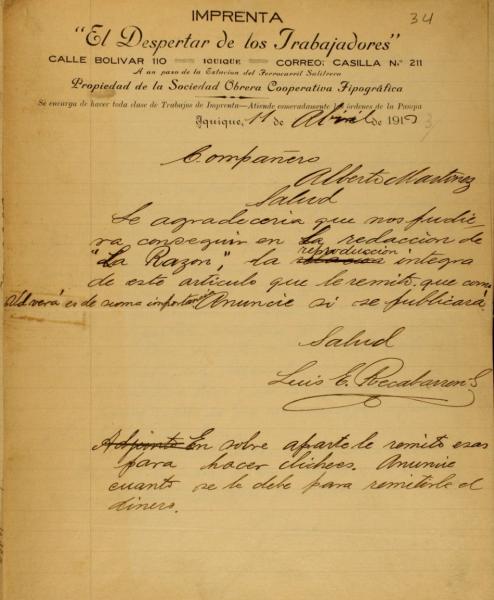 34
IMPRENTA
"El Despertar de los Trabajadores"
CALLE BOLIVAR 110 IQUIQUE CORREO: CASILLA N.º 211
A un paso de la Estación del Ferrocarril Salitrero
Propiedad de la Sociedad Obrera Cooperativa Tipográfica
Se encarga de hacer toda clase de Trabajos de Imprenta—Atiende esmeradamente las órdenes de la Pampa
Iquique, 11 de Abril de 191
Compañero
Alberto Martinez
Salud
Le agradeceria que nos pudie-
ra conseguir en la redaccion de
"La Razon", la reproduccion integra
de este articulo que le remito, que como
Ud verá es de suma importancia Anuncie si se publicará.
Salud
Luis E. Recabarren S.
Adjunto En sobre aparte le remito esas
para hacer clichees. Anuncie
cuanto se le debe para remitirle el
dinero.